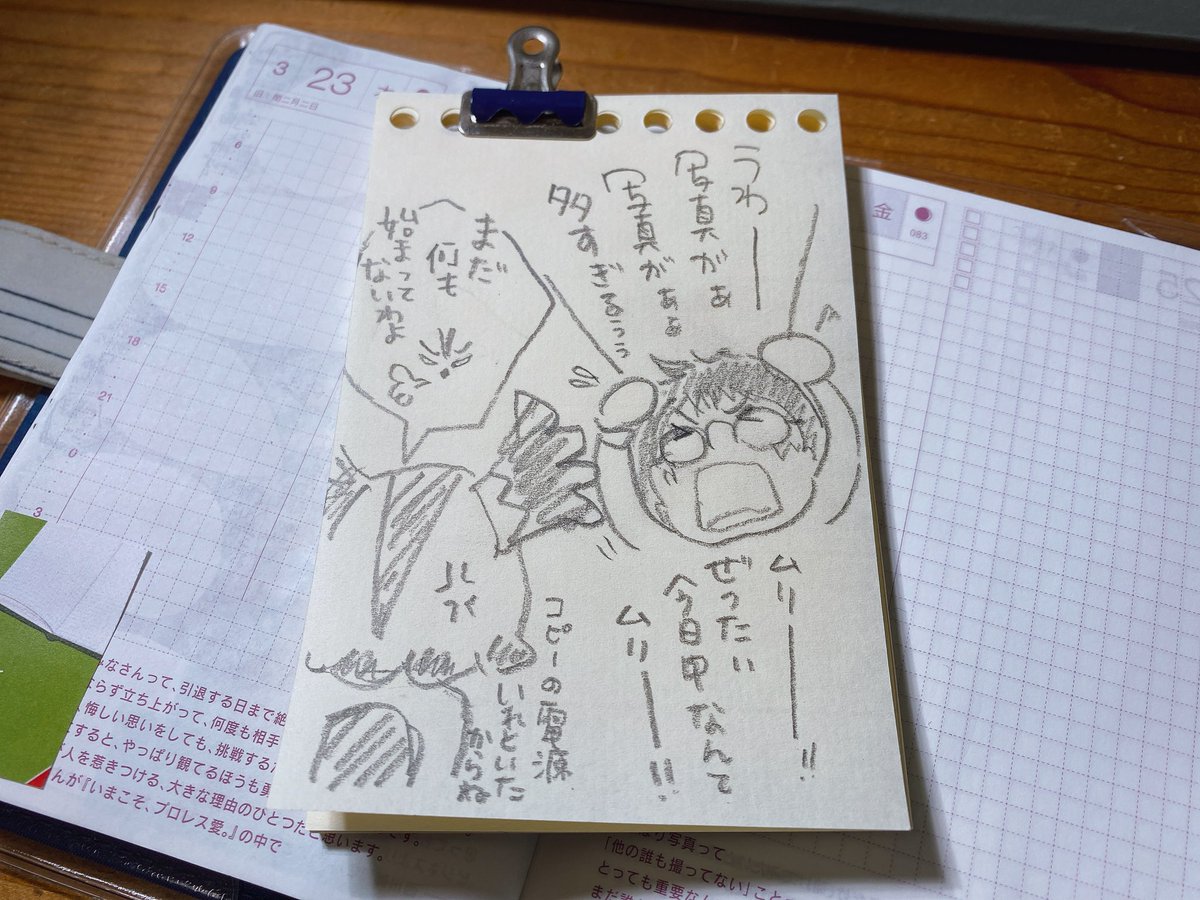 うわー
写真がぁ
写真がぁぁ
多すぎるぅぅ
まだ
何も
始まって
ないわよ
ムリー!!
ぜったい
今日中なんて
ムリー!!
コピーの電源
いれといた
からね
3 23
旧 閏二月二日
6
9
12
15
18
21
0
3
金
083
なさんって、引退する日まで絶
ならず立ち上がって、何度も相手
悔しい思いをしても、挑戦する
すると、やっぱり観てるほうも勇
人を惹きつける、大きな理由のひとつだと思います。
んが『いまこそ、プロレス愛。』の中で
写真って
「他の誰も撮ってない」こと
とっても重要な
まだ誰